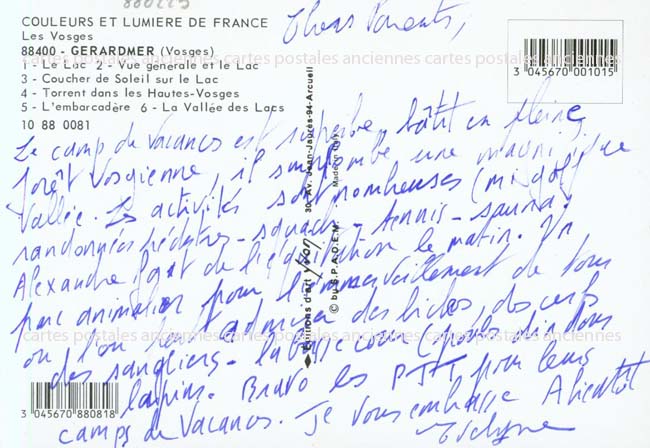 880225
COULEURS ET LUMIERE DE FRANCE
Les Vosges
88400 - GERARDMER (Vosges)
1 - Le Lac 2 - Vue générale et le Lac
3 - Coucher de Soleil sur le Lac
4 - Torrent dans les Hautes-Vosges
5 - L'embarcadère 6 - La Vallée des Lacs
10 88 0081
3 045670 001015
cartes postales anciennes cartes postales anciennes cartes postales anciennes
Chers Parents,
Le camp de Vacances est superbe, bâtit en pleine
forêt Vosgienne, il surplombe une magnifique
Vallée. Les activités sont nombreuses (mi golf
randonnées pédestres - squach - tennis - sauna)
Alexandre fait de l'équitation le matin. Un
parc animalier pour l'émerveillement de tous
où l'on peut admirer des biches, des cerfs
des sangliers - la basse cour (poules dindons
lapins. Bravo les PTT pour leurs
camps de Vacances. Je vous embrasse A bientôt
Evelyne
Editions d'art yvon
30, Av. Jean-Jaurès-94-Arcueil
Made in
© by S.P.A.D.E.M.
cartes postales anciennes cartes postales anciennes cartes postales anciennes
3 045670 880818